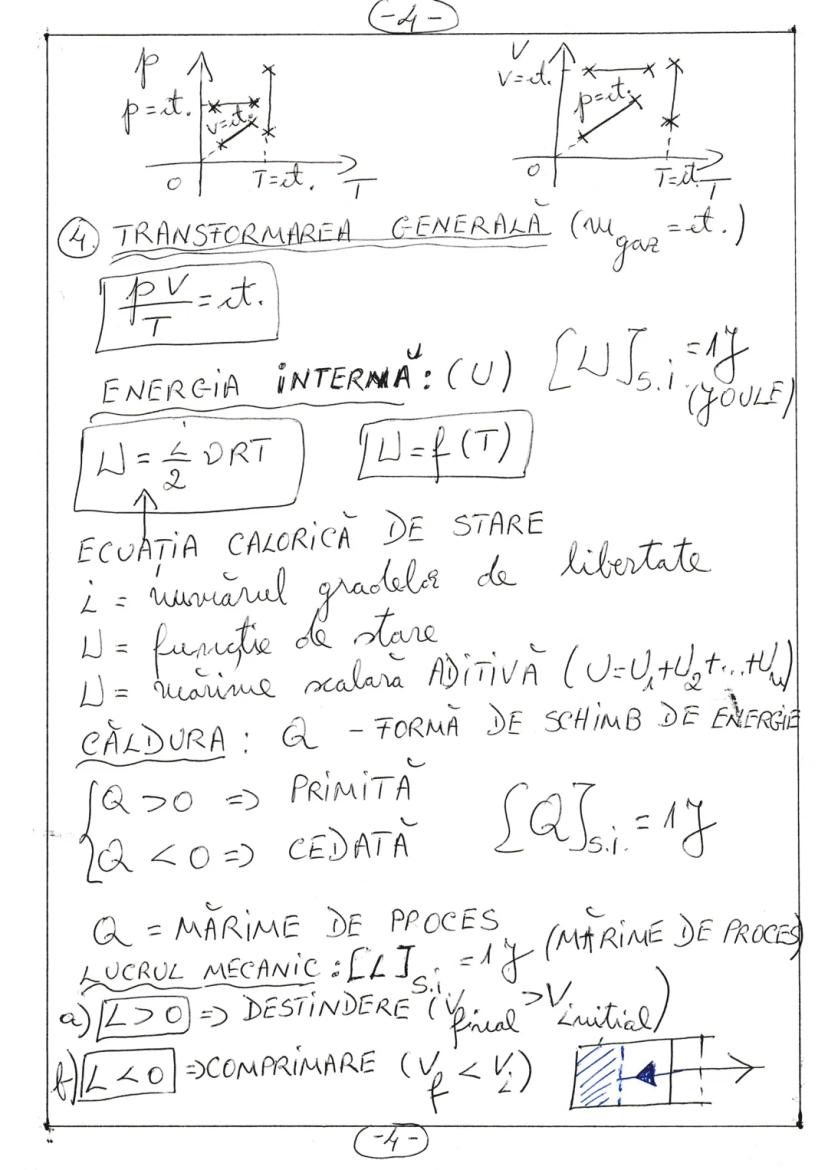 -4-
p V
p=ct. V=ct. V=ct. p=ct.
0 T=ct. T 0 T=ct. T
④ TRANSFORMAREA GENERALĂ (m gaz = ct.)
pV/T = ct.
ENERGIA INTERNĂ: (U) [U]S.i. = 1J
(JOULE)
U = i/2 νRT U = f(T)
ECUAȚIA CALORICĂ DE STARE
i = numărul gradelor de libertate
U = funcție de stare
U = mărime scalară ADITIVĂ (U=U1+U2+...+Un)
CĂLDURA: Q - FORMĂ DE SCHIMB DE ENERGIE
Q > 0 => PRIMITĂ
Q < 0 => CEDATĂ [Q]S.i. = 1J
Q = MĂRIME DE PROCES
LUCRUL MECANIC: [L]S.i. = 1J (MĂRIME DE PROCES)
a) L > 0 => DESTINDERE (Vfinal > Vinitial)
b) L < 0 => COMPRIMARE (Vf < Vi)
-4-